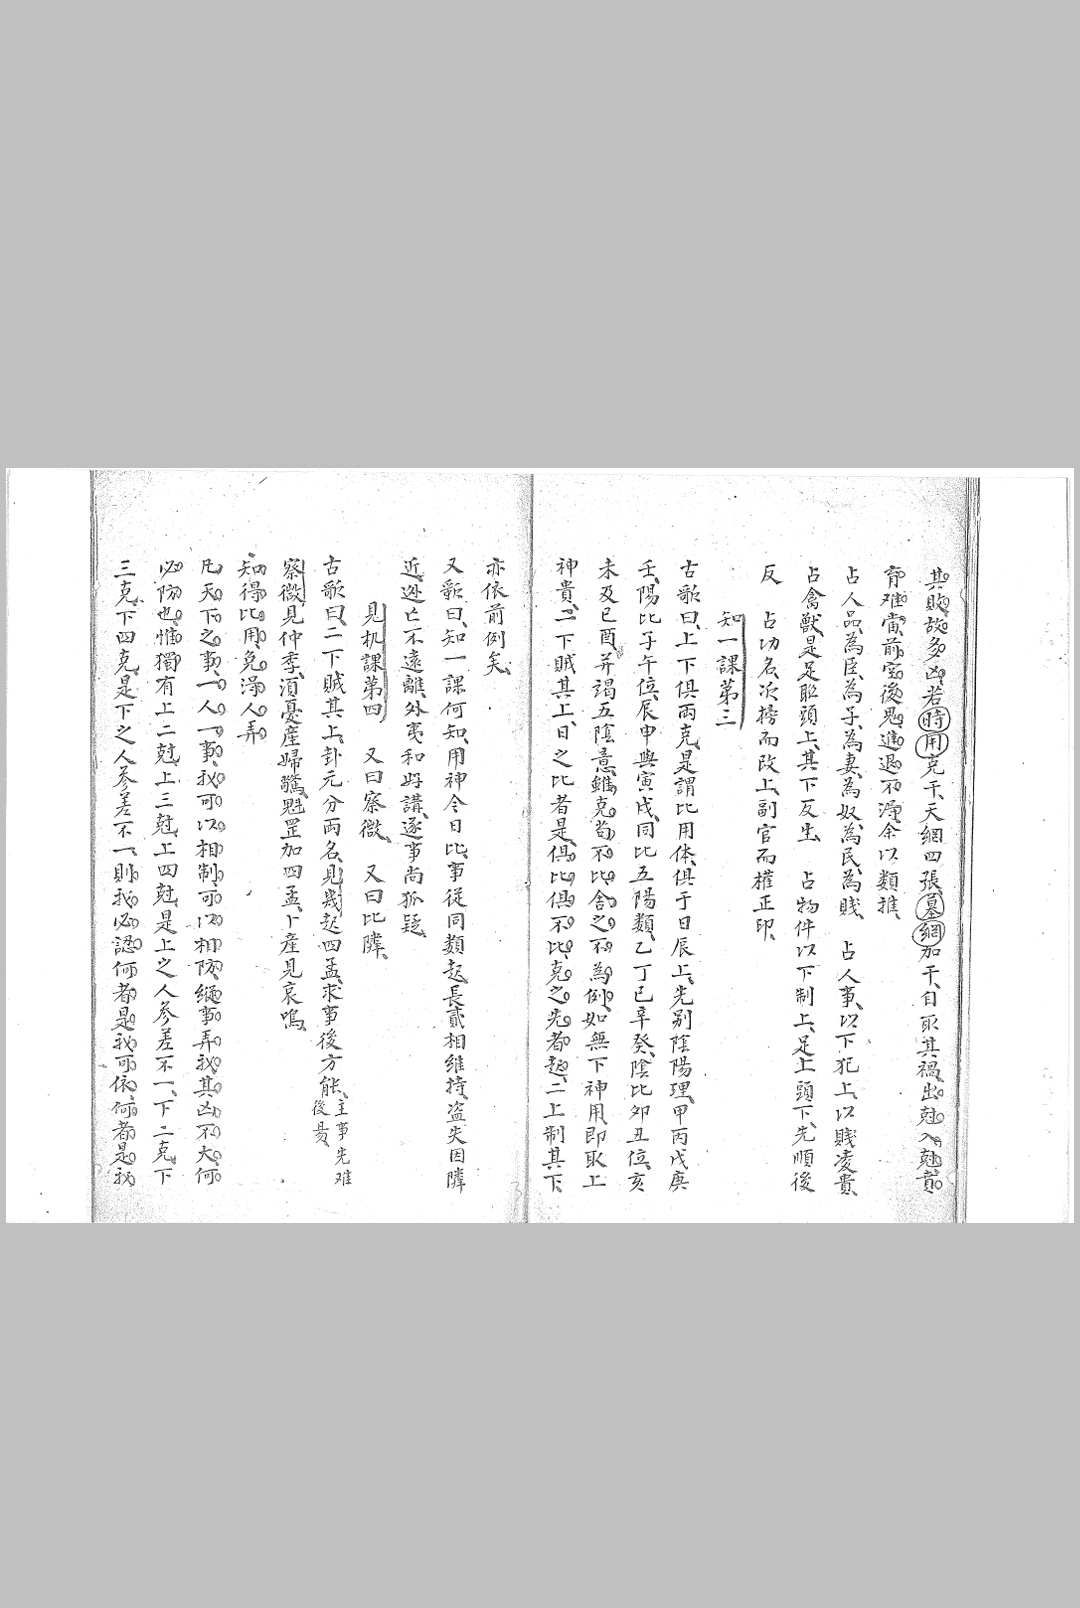 其敗故多凶若時用克干天網四張墓網加干自取其禍出尅入尅責
當前空後思進退不得余以類推
占人品為臣為子為妻為奴為民為賤 占人事以下犯上以賤凌貴
占禽獸是足取頭上其下反生 占物件以下制上足上頭下先順後
反 占功名次榜而改上副官而權正印
知一課第三
古歌曰上下俱兩克是謂比用体俱于日辰上先别陰陽理甲丙戊庚
壬陽比子午位辰申與寅戌同比五陽類乙丁已辛癸陰比卯丑位亥
未及巳酉并謁五陰意雖克茍不比舍之不為例如無下神用即取上
神貴二下賊其上日之比者是俱比俱不比克之先者起二上制其下
亦依前例矣
又歌曰知一課何知用神今日比事從同類起長貳相維持盜失因隣
近逃亡不遠離外夷和好講逐事尚狐疑
見机課第四 又曰察微 又曰比隣
古歌曰二下賊其上卦元分兩名見幾起四孟求事後方能主事先难後易
察微見仲季湏憂産婦驚魁罡加四孟卜産見哀鳴
知得比用免得人弄
凡天下之事一人一事我可以相制可以相防縱事弄我其凶不大何
必防也惟獨有上二尅上三尅上四尅是上之人參差不一下二克下
三克下四克是下之人參差不一則我必認何者是我可依何者是我